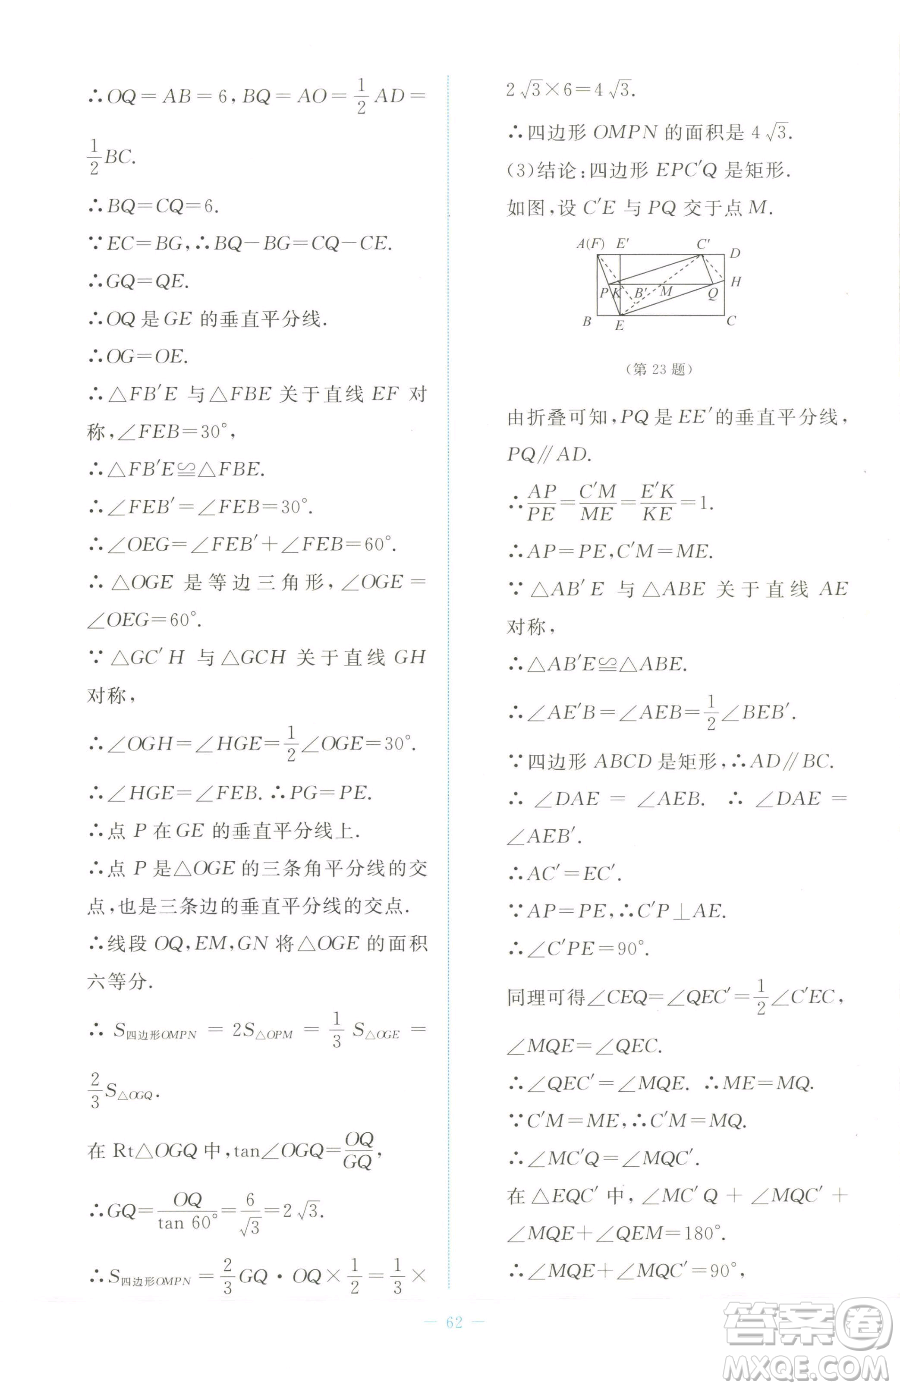 ∴OQ=AB=6,BQ=AO=1/2AD=
1/2BC.
∴BQ=CQ=6.
∵EC=BG,∴BQ-BG=CQ-CE.
∴GQ=QE.
∴OQ 是 GE 的垂直平分线.
∴OG=OE.
∴△FB′E 与△FBE 关于直线 EF 对
称,∠FEB=30°,
∴△FB′E≌△FBE.
∴∠FEB′=∠FEB=30°.
∴∠OEG=∠FEB′+∠FEB=60°.
∴△OGE 是等边三角形,∠OGE=
∠OEG=60°.
∵△GC′H 与△GCH 关于直线 GH
对称,
∴∠OGH=∠HGE=1/2∠OGE=30°.
∴∠HGE=∠FEB.∴PG=PE.
∴点 P 在 GE 的垂直平分线上.
∴点 P 是△OGE 的三条角平分线的交
点,也是三条边的垂直平分线的交点.
∴线段 OQ,EM,GN 将△OGE 的面积
六等分.
∴S四边形OMPN=2S△OPM=1/3S△OGE=
2/3S△OGQ.
在 Rt△OGQ 中,tan∠OGQ=OQ/GQ,
∴GQ=OQ/tan 60°=6/√3=2√3.
∴S四边形OMPN=2/3GQ·OQ×1/2=1/3×
2√3×6=4√3.
∴四边形 OMPN 的面积是 4√3.
(3)结论:四边形 EPC′Q 是矩形.
如图,设 C′E 与 PQ 交于点 M.
A(F) E′ C′ D
P K B′ M Q H
B E C
(第 23 题)
由折叠可知,PQ 是 EE′的垂直平分线,
PQ∥AD.
∴AP/PE=C′M/ME=E′K/KE=1.
∴AP=PE,C′M=ME.
∵△AB′E 与△ABE 关于直线 AE
对称,
∴△AB′E≌△ABE.
∴∠AE′B=∠AEB=1/2∠BEB′.
∵四边形 ABCD 是矩形,∴AD∥BC.
∴∠DAE=∠AEB.∴∠DAE=
∠AEB′.
∴AC′=EC′.
∵AP=PE,∴C′P⊥AE.
∴∠C′PE=90°.
同理可得∠CEQ=∠QEC′=1/2∠C′EC,
∠MQE=∠QEC.
∴∠QEC′=∠MQE.∴ME=MQ.
∵C′M=ME,∴C′M=MQ.
∴∠MC′Q=∠MQC′.
在△EQC′中,∠MC′Q+∠MQC′+
∠MQE+∠QEM=180°.
∴∠MQE+∠MQC′=90°,
— 62 —
答案圈
MXQE.COM